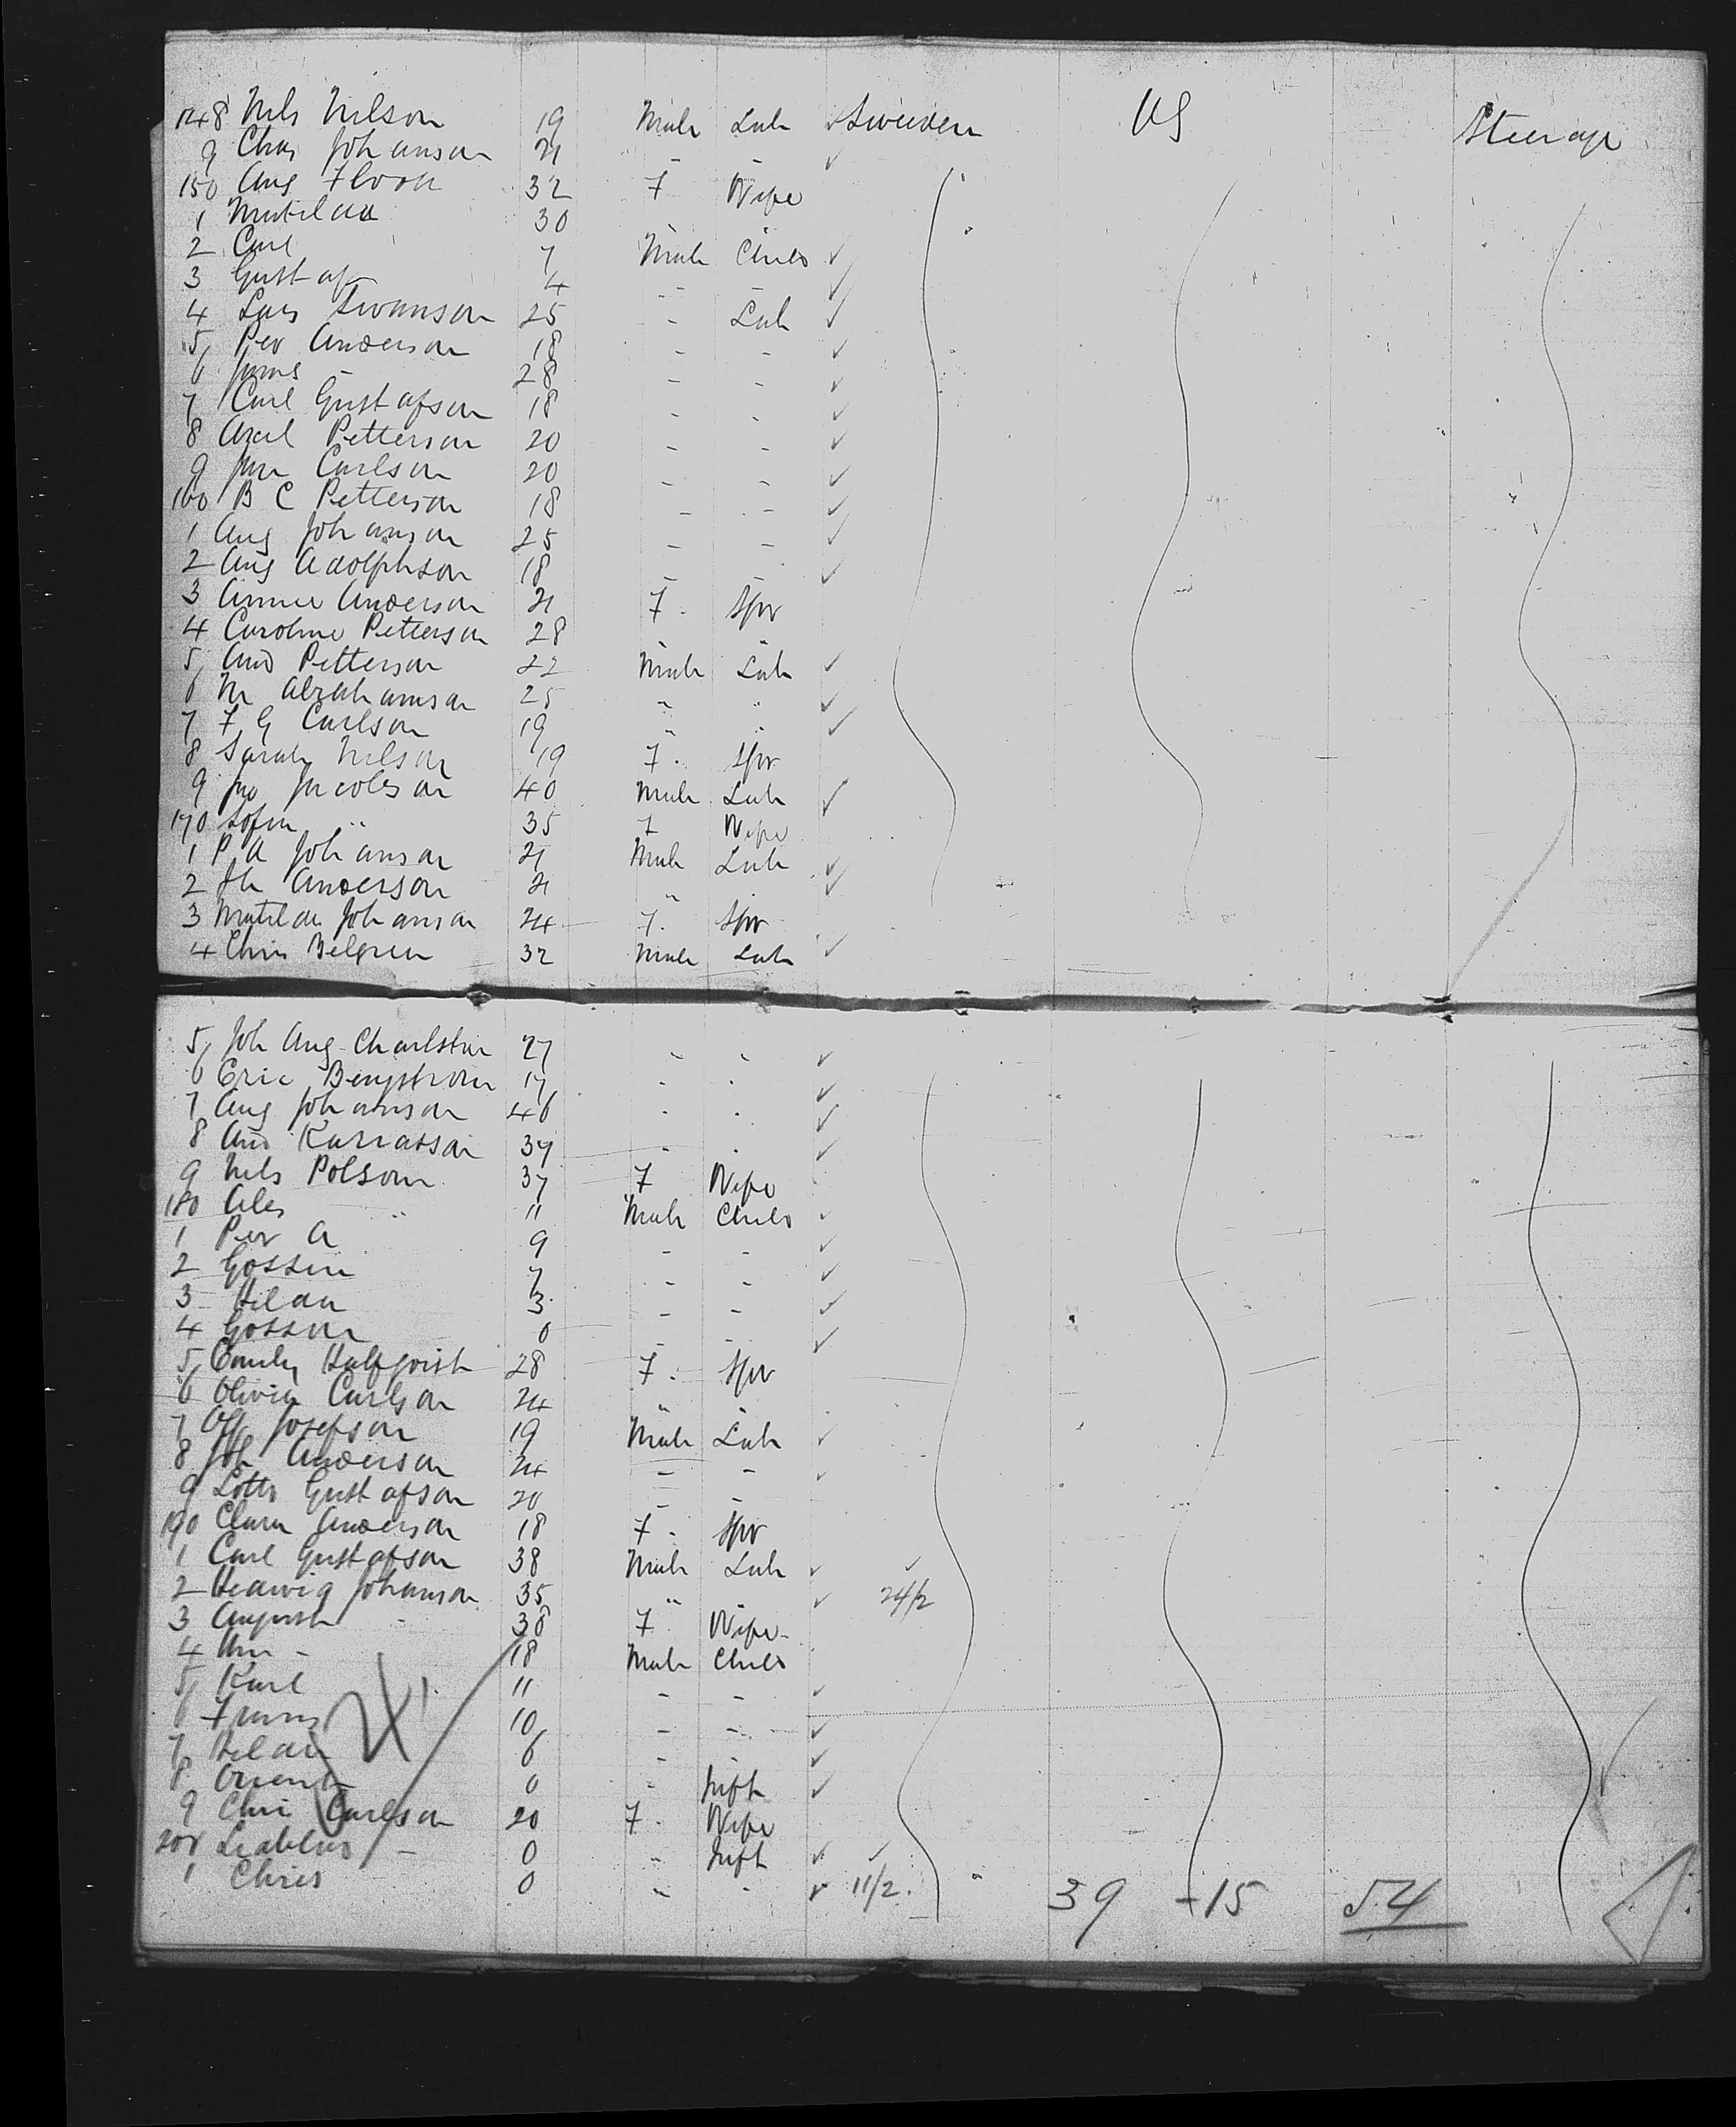 148 Nels Nelson 19 Male Lab Sweden US Steerage
9 Chas Johanson 21 - -
150 Aug Floon 32 F Wife
1 Matilda 30 " "
2 Carl 7 Male Child
3 Gustaf 4 - -
4 Lars Swanson 25 - Lab
5 Per Anderson 18 - -
6 Jonas - 28 - -
7 Carl Gustafson 18 - -
8 Axel Petterson 20 - -
9 Jon Carlson 20 - -
160 B C Petterson 18 - -
1 Aug Johanson 25 - -
2 Aug Adolphson 18 - -
3 Annie Anderson 21 F. Spr
4 Caroline Petterson 28 " "
5 And Petterson 22 Male Lab
6 M Abrahamson 25 " "
7 F G Carlson 19 " "
8 Sarah Nelson 19 F. Spr
9 Jno Jacobson 40 Male Lab
170 Sofia " 35 F Wife
1 P A Johanson 21 Male Lab
2 Jh Anderson 21 " "
3 Matilda Johanson 24 F. Spr
4 Chris Belgren 32 Male Lab
5 Joh Aug Charlston 27 " "
6 Eric Bengstrom 17 " "
7 Aug Johanson 46 " "
8 And 37 " "
9 Nels Polson 37 F Wife
180 Alex " 11 Male Child
1 Per A 9 - -
2 7 - -
3 Hilda 3 - -
4 0 - -
5 Emily 28 F. Spr
6 Olivia Carlson 24 " "
7 Josefson 19 Male Lab
8 Joh Anderson 24 - -
9 Lotta Gustafson 20 - -
190 Clara Anderson 18 F. Spr
1 Carl Gustafson 38 Male Lab
2 Hedwig Johanson 35 " " 24/2
3 Augusta - 38 F Wife
4 - 18 Male Child
5 Karl 11 - -
6 10 - -
7 Hilda 6 - -
8 0 - Inft
9 Carlson 20 F. Wife
200 - 0 - Inft
1 Chris 0 " " 11/2. 39 -15 54